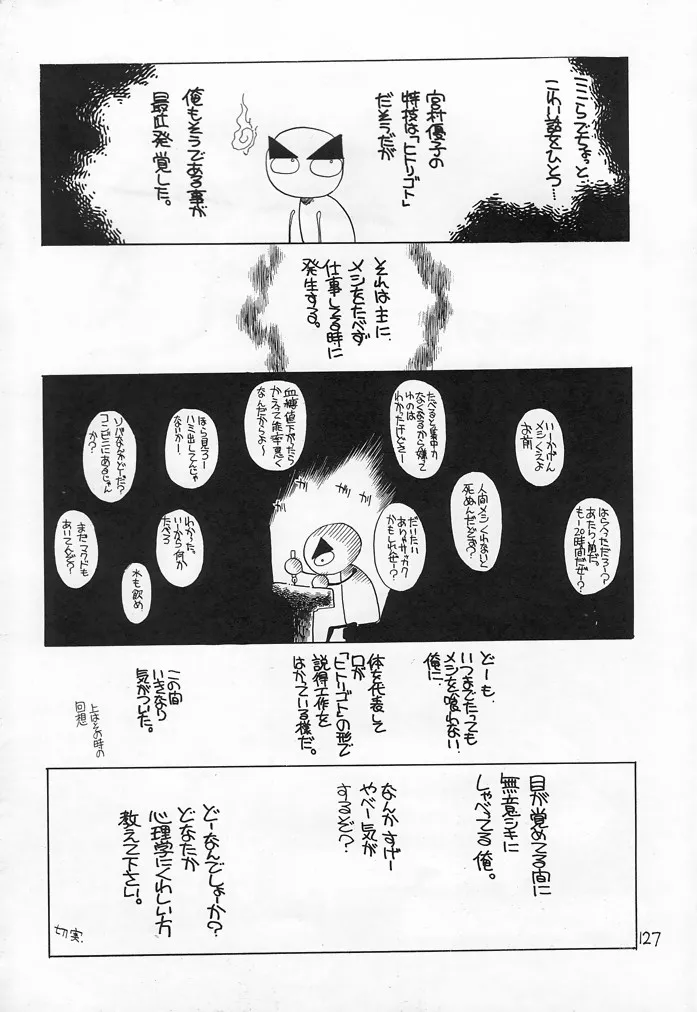 ここらでちょっと
こわい話をひとつ…
宮村優子の
特技は「ヒトリゴト」
だそうだが
俺もそうである事が
最近発覚した。
それは主に
メシをたべず
仕事してる時に
発生する。
いーかげん
メシくえよ
お前
はらへっただろー?
あたりめだ。
もー20時間だぜー?
人間メシくわないと
死ぬんだとさ?
たべると集中力
なくなるから嫌て
わのは
わかったけどさー
だいたい
ありゃサッカク
かもしれねーぞ?
血糖値下がったら
かえって能率悪く
なんだからよ〜
ほら見ろー
ハミ出してんじゃ
ないかー
ソバなんかどーだ?
コンビニにあるじゃん
か?
わかった。
いーから何か
たべろ
水も飲め
まだマクドも
あいてんどう?
ギュ
ギュ
ギュ
どーも、
いつまでたっても
メシを喰わない
俺に、
体を代表して
口が
「ヒトリゴト」の形で
説得工作を
はかている様だ。
この間
いきなり
気がついた。
上はその時の
回想
目が覚めてる間に
無意シキに
しゃべってる俺。
なんかすげー
やべー気が
するぞ?
どーなんでしょーか?
どなたか
心理学にくわしい方
教えて下さい。
切実.
127